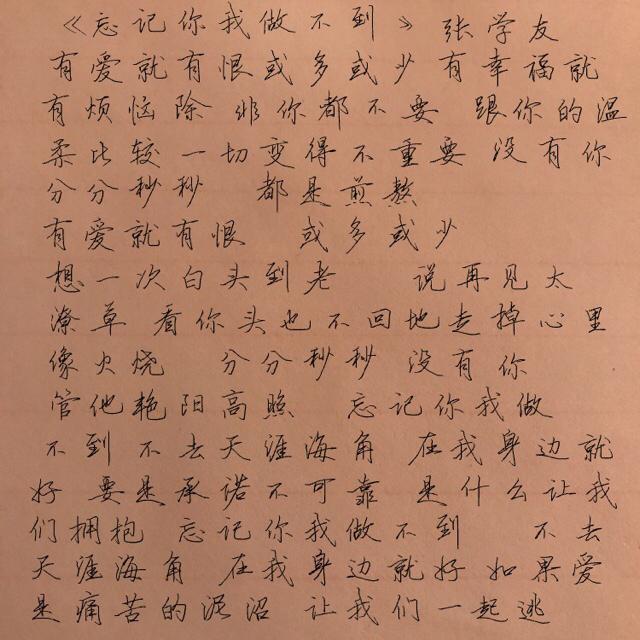 《忘记你我做不到》 张学友
有爱就有恨或多或少 有幸福就
有烦恼除非你都不要 跟你的温
柔比较 一切变得不重要 没有你
分分秒秒 都是煎熬
有爱就有恨 或多或少
想一次白头到老 说再见太
潦草 看你头也不回地走掉心里
像火烧 分分秒秒 没有你
管他艳阳高照 忘记你我做
不到 不去天涯海角 在我身边就
好 要是承诺不可靠 是什么让我
们拥抱 忘记你我做不到 不去
天涯海角 在我身边就好 如果爱
是痛苦的泥沼 让我们一起逃